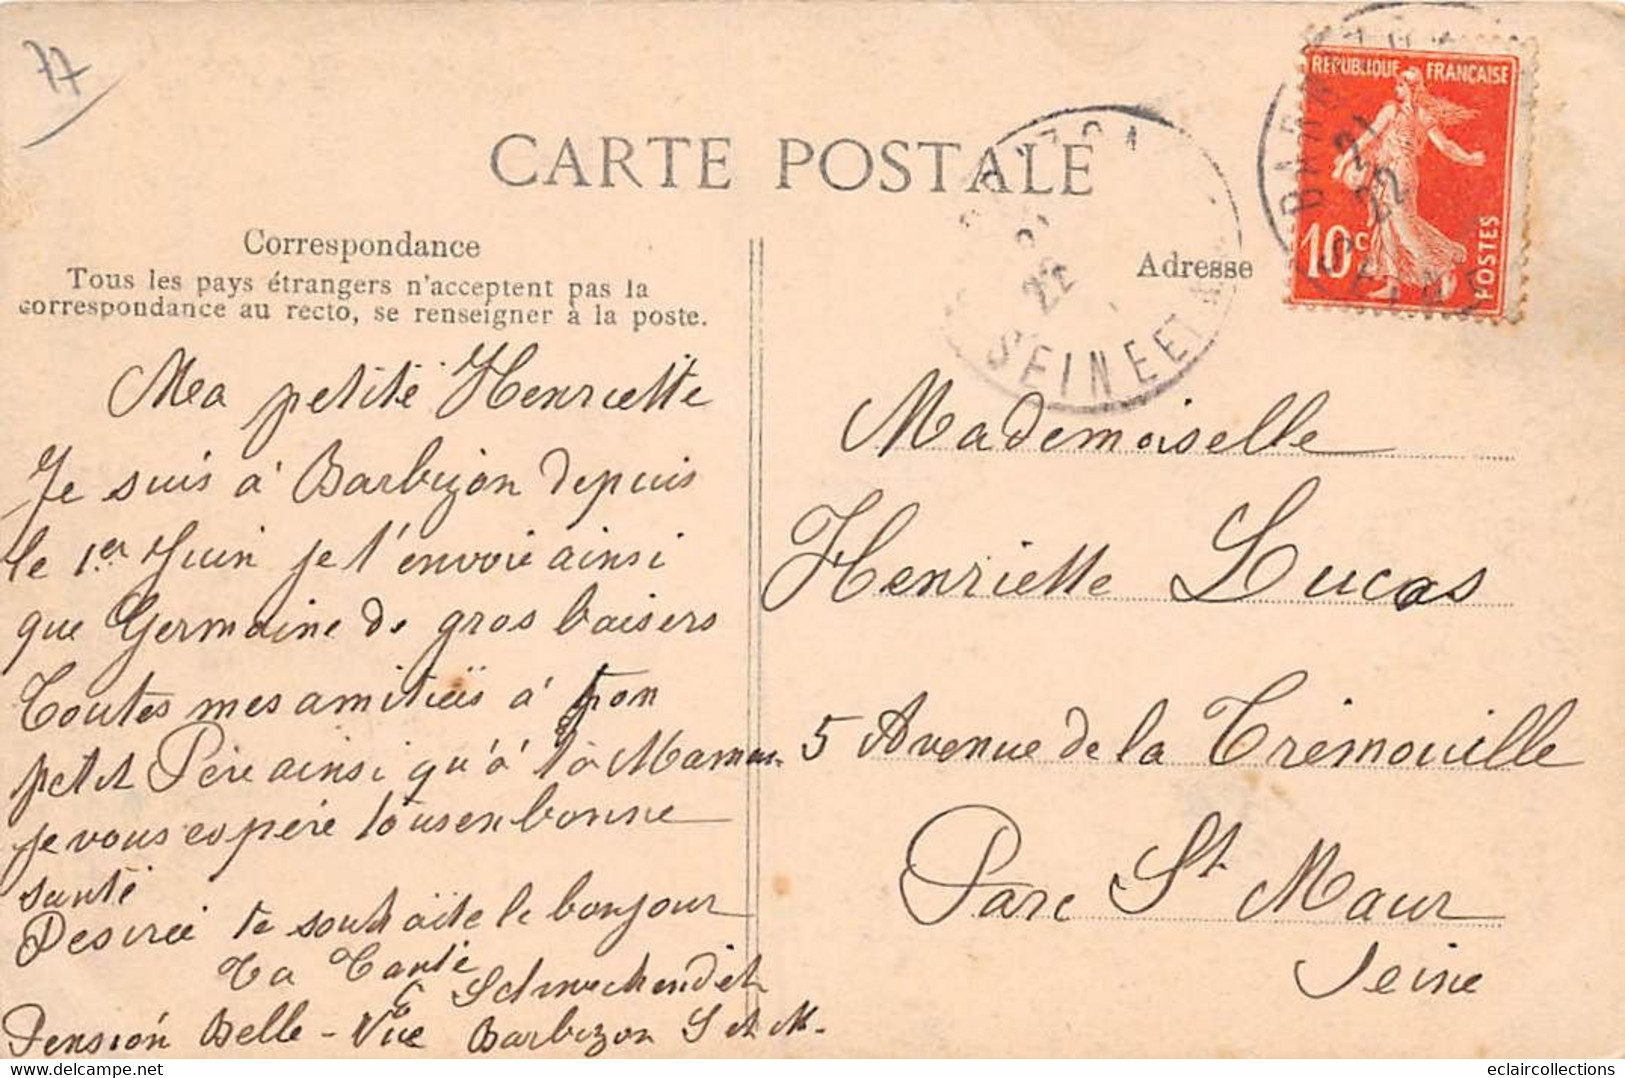 77
CARTE POSTALE
RÉPUBLIQUE FRANÇAISE
10c
POSTES
SEINE ET
22
21
22
Correspondance
Tous les pays étrangers n'acceptent pas la
correspondance au recto, se renseigner à la poste.
Adresse
Ma petite Henriette
Je suis à Barbizon depuis
le 1er Juin je t'envoie ainsi
que Germaine de gros baisers
Toutes mes amitiës à ton
petit Père ainsi qu'à ta Maman
je vous espère tous en bonne
santé
Desirée te souhaite le bonjour
Ta Tante
Pension Belle-Vue Barbizon S et M.
Mademoiselle
Henriette Lucas
5 Avenue de la Trémouille
Parc St Maur
Seine
delcampe.net
eclaircollections